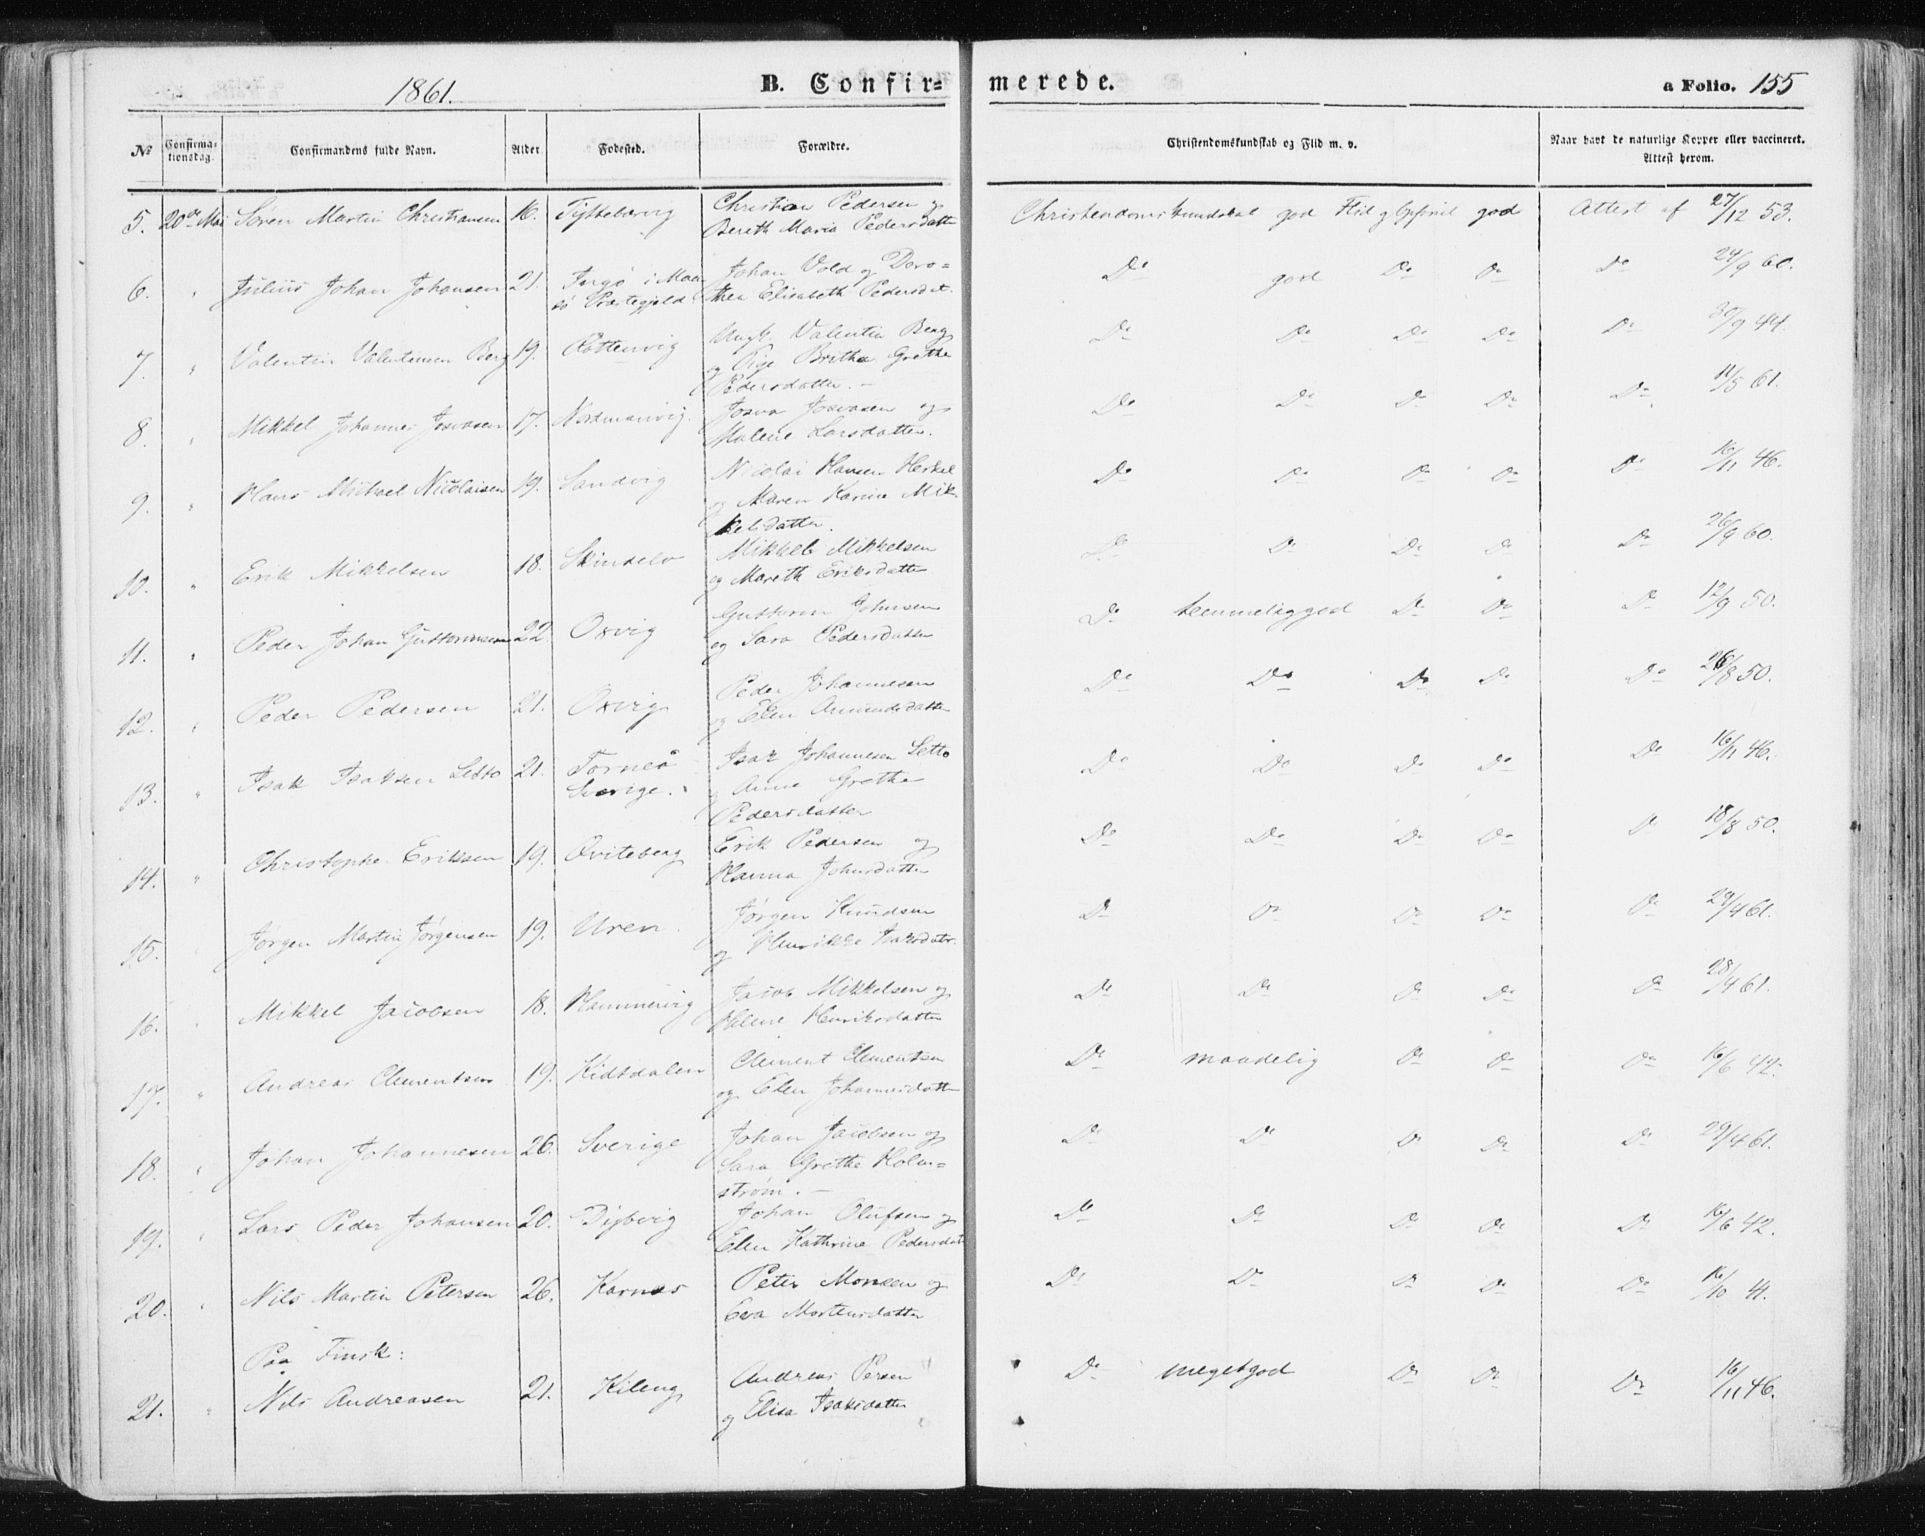 1861.
B. Confirmerede.
a Folio. 155
№ Confirmationsdag. Confirmandens fulde Navn. Alder. Fødested. Forældre. Christendomskundskab og Flid m. v. Naar havt de naturlige Kopper eller vaccineret. Attest herom.
5. 20de Mai Søren Martin Christiansen 16. Christian Pedersen og Christendomskundskab god Flid god Attest af 27/12 53.
Bereth Maria Pedersdatter
6. " Julius Johan Johansen 21. i Maa Johan Vold og Doro= Do god Do Do Do 24/9 60.
sö Præstegjeld thea Elisabeth Pedersdat.
7. " Valentin Valentinsen Berg 19. Rottenvig Ungk. Valentin Berg Do Do Do Do Do 30/9 44.
og Pige Britha Grethe
Pedersdatter. –
8. " Mikkel Johannes Josvasen 17. Nordmanvig. Josva Josvasen og Do Do Do Do Do 11/5 61.
Malene Larsdatter.
9. " Hans Michael Nicolaisen 19. Sandvig Nicolai Hansen Do Do Do Do Do 16/11 46.
og Maren Karine Mik-
kelsdatter.
10. " Erik Mikkelsen 18. Skindelv Mikkel Mikkelsen Do Do Do Do Do 26/9 60.
og Mareth Eriksdatter
11. " Peder Johan Guttormsen 22. Oxvig Guttorm Johnsen Do temmeliggod Do Do Do 12/9 50.
og Sara Pedersdatter
12. " Peder Pedersen 21. Oxvig Peder Johannesen Do Do Do Do Do 26/8 50.
og Elen Amundsdatter
13. " Isak Isaksen Letto 21. Torneå Isak Johannesen Letto Do Do Do Do Do 16/11 46.
Sverige. og Anna Grethe
Pedersdatter
14. " Christophe Eriksen 19. Qviteberg Erik Pedersen og Do Do Do Do Do 18/8 50.
Hanna Johnsdatter
15. " Jørgen Martin Jørgensen 19. Uren. Jørgen Knudsen Do Do Do Do Do 29/4 61.
og Henrikke Isaksdatr.
16. " Mikkel Jacobsen 18. Hammervig Jacob Mikkelsen og Do Do Do Do Do 28/4 61.
Helene Henriksdatter
17. " Andreas Clementsen 19. Kidsdalen Clement Clementsen Do maadelig Do Do Do 16/6 42.
og Elen Johannesdatter
18. " Johan Johannesen 26. Sverige Johan Jacobsen og Do Do Do Do Do 29/4 61.
Sara Grethe Holm=
strøm. –
19. " Lars Peder Johansen 20. Dybvig Johan Olufsen og Do Do Do Do Do 16/6 42.
Elen Kathrine Pedersdat
20. " Nils Martin Petersen 26. Karnes Peter Monsen og Do Do Do Do Do 16/10 41.
Eva Mortensdatter
Paa Finsk:
21. " Nils Andreasen 21. Kileng Andreas Persen Do megetgod Do Do Do 16/11 46.
og Elisa Isaksdatter